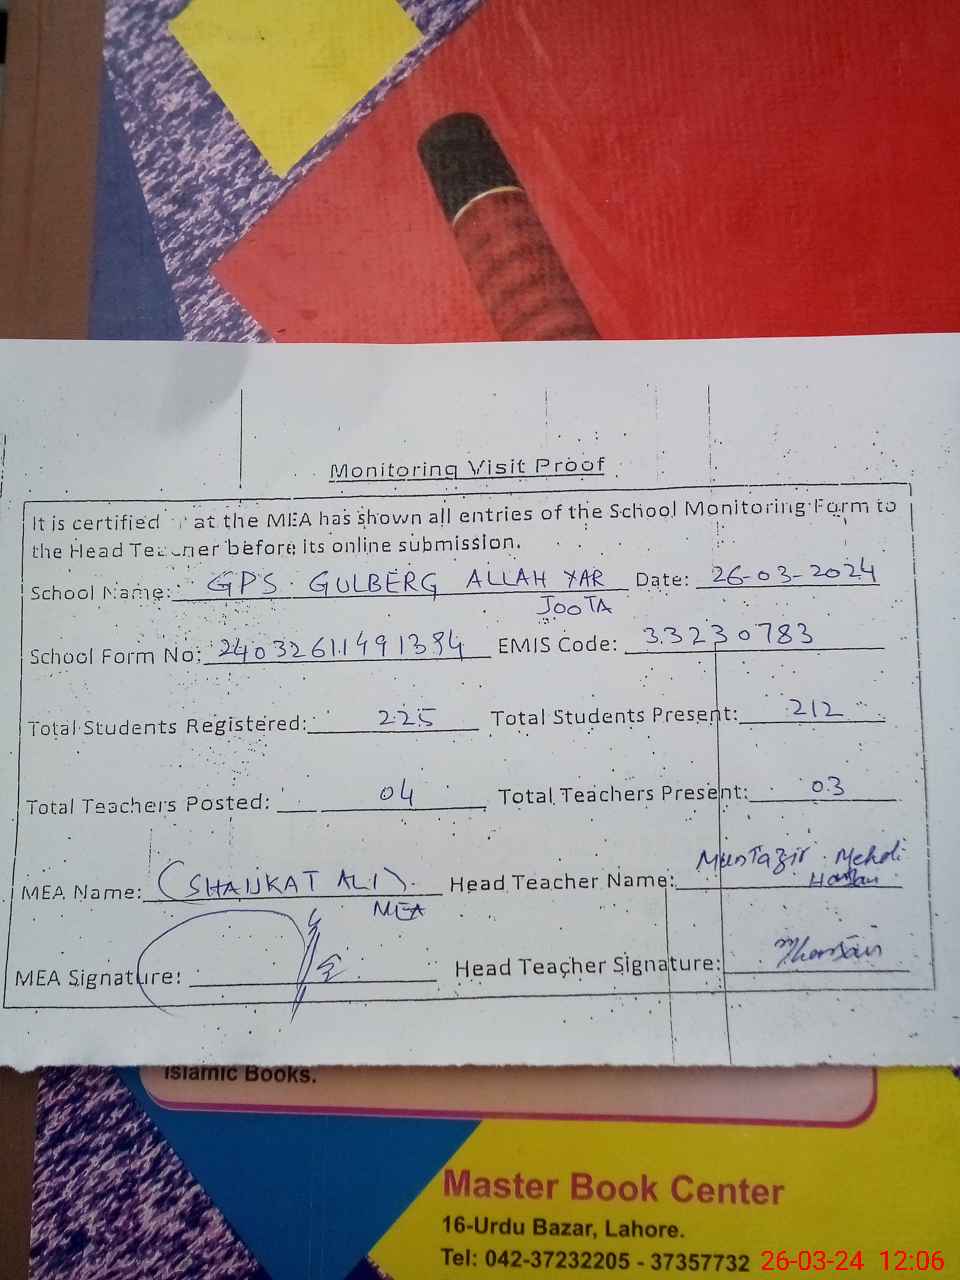 Monitoring Visit Proof
It is certified at the MEA has shown all entries of the School Monitoring Form to
the Head Teacher before its online submission.
School Name: GPS GULBERG ALLAH YAR Date: 26-03-2024
JOOTA
School Form No: 24032611491384 EMIS Code: 33230783
Total Students Registered: 225 Total Students Present: 212
Total Teachers Posted: 04 Total Teachers Present: 03
MEA Name: (SHAUKAT ALI) Head Teacher Name: Muntazir Mehdi
MEA
MEA Signature: Head Teacher Signature:
Islamic Books.
Master Book Center
16-Urdu Bazar, Lahore.
Tel: 042-37232205 - 37357732
26-03-24 12:06